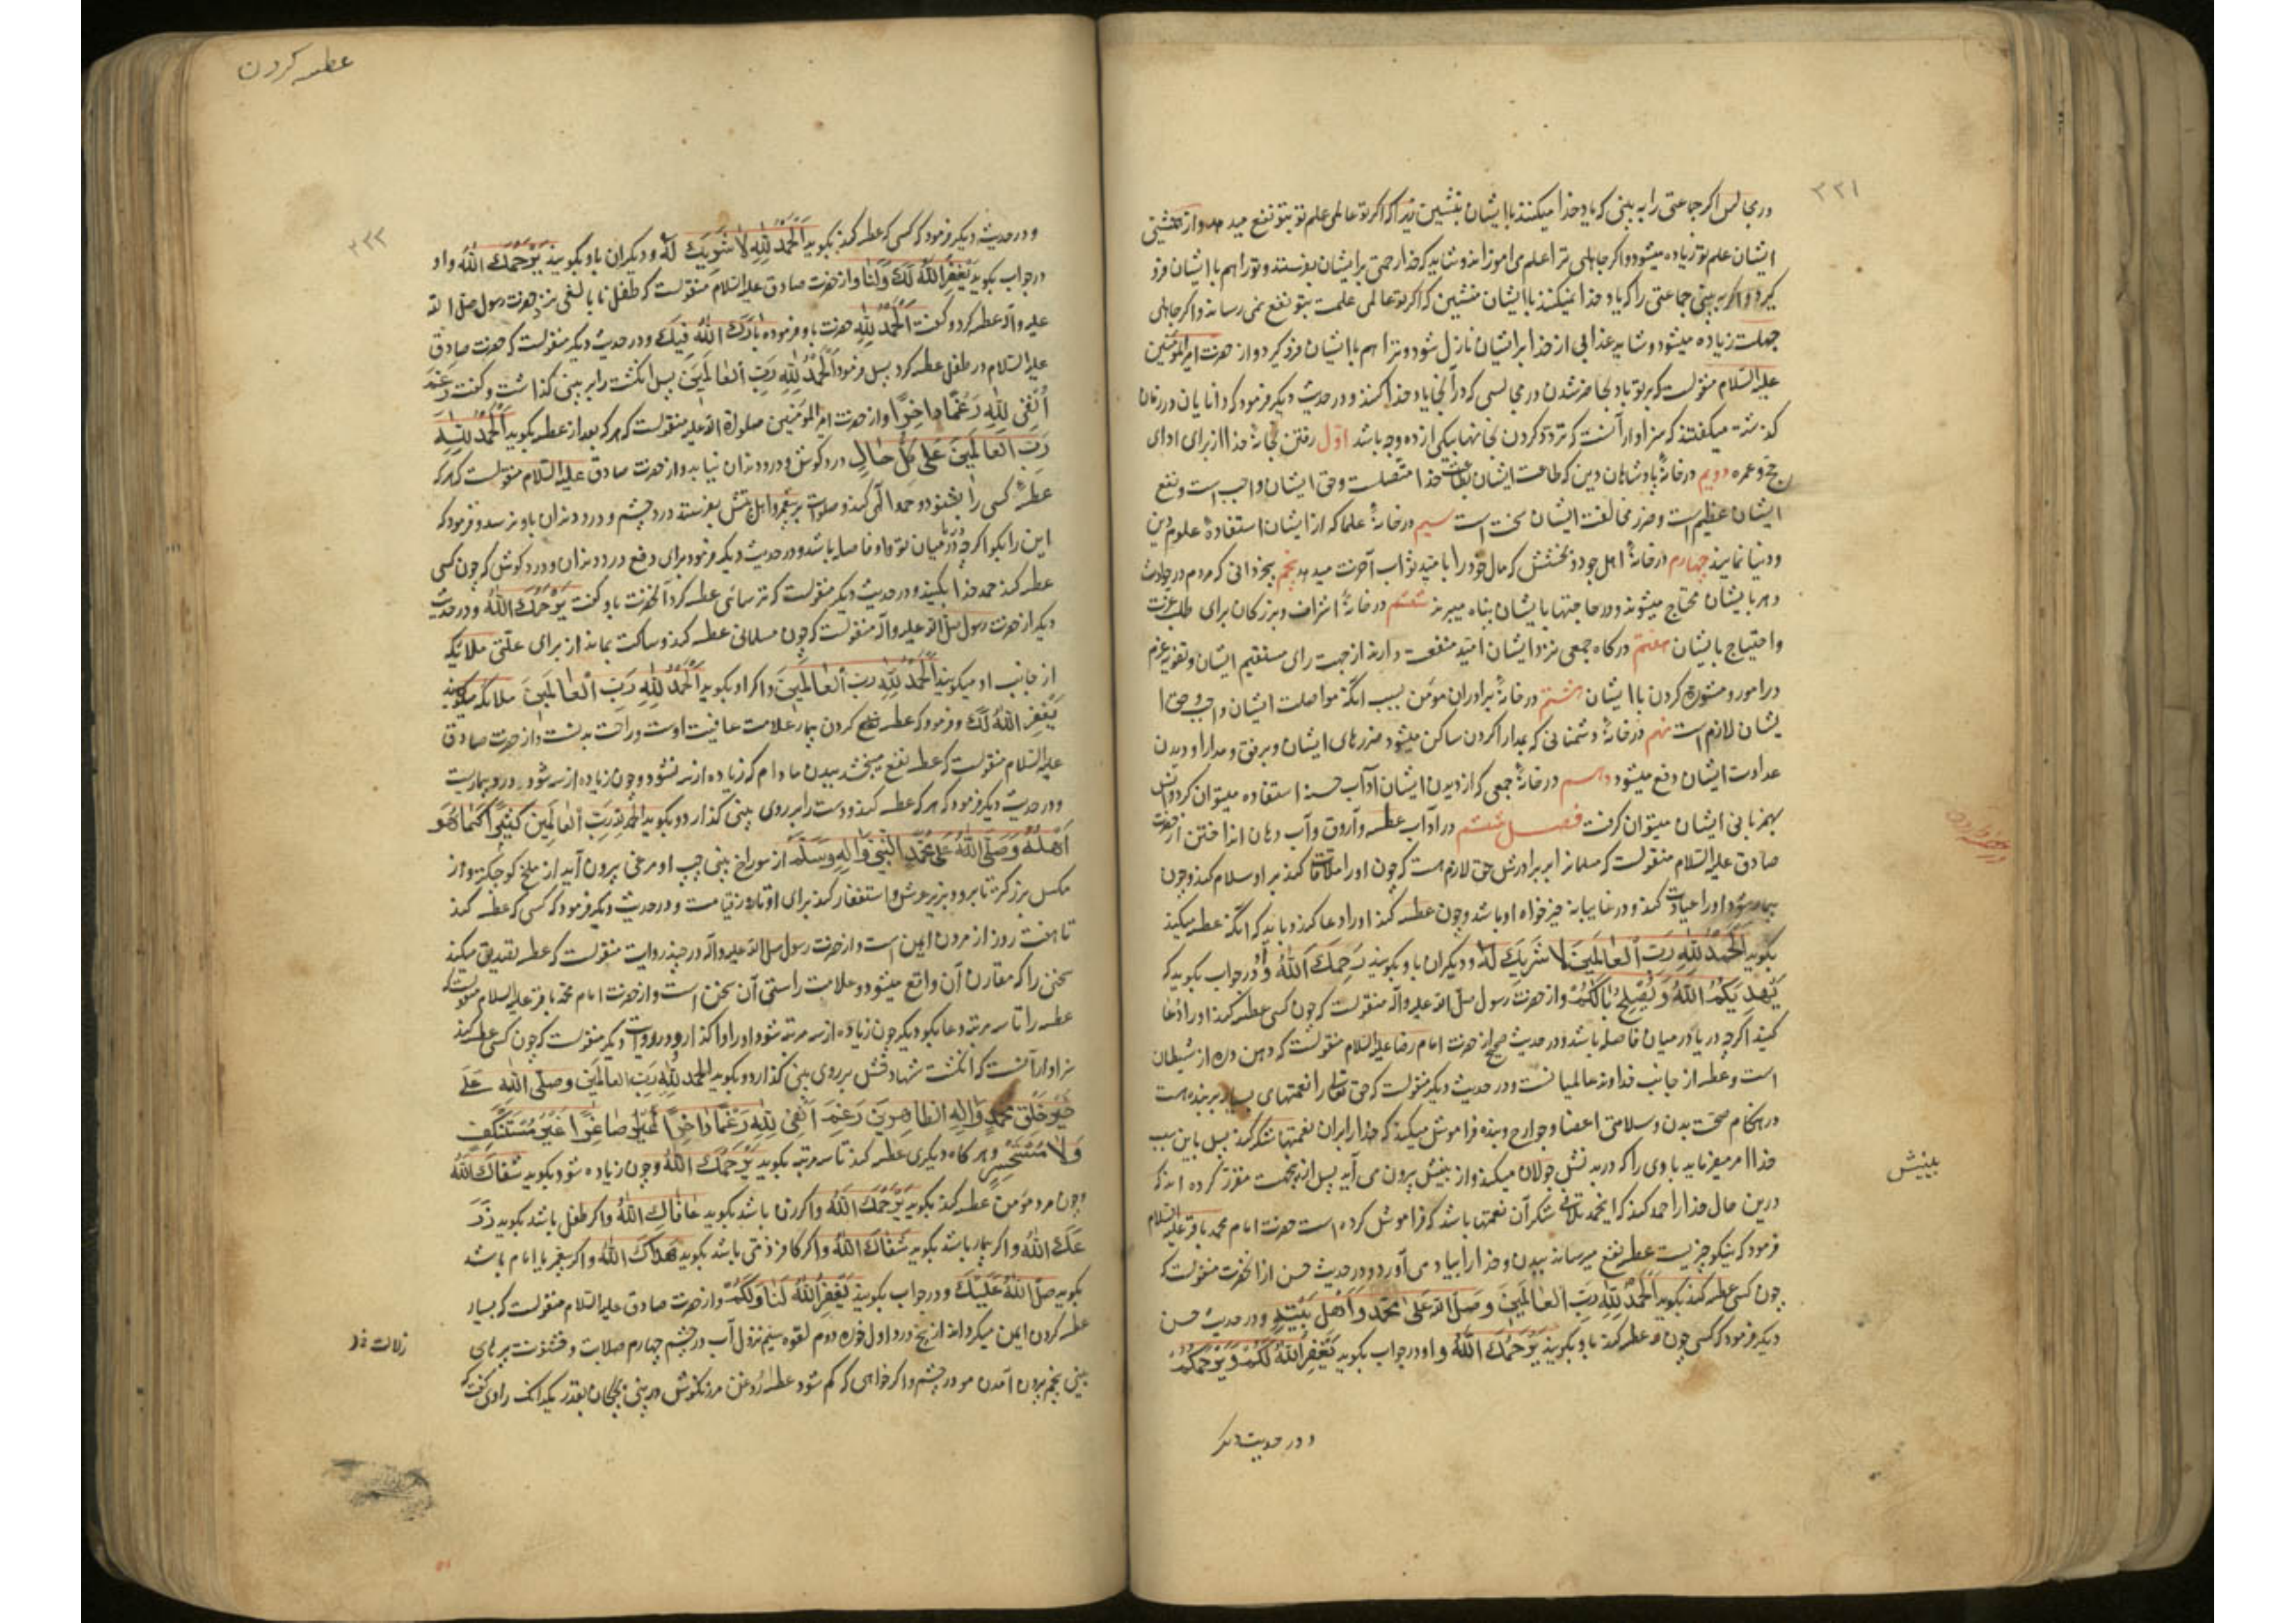 ۲۳۱
در مجالس اگر جماعتی را به بینی که یاد خدا میکنند با ایشان بنشین زیرا که اگر تو عالمی علم تو بتو نفع میدهد و از همنشینی
ایشان علم تو زیاده میشود و اگر جاهلی ترا علم می آموزانند و شاید که خدا رحمتی بر ایشان بفرستد و تو را هم با ایشان فرو
گیرد و اگر به بینی جماعتی را که یاد خدا نمیکنند با ایشان منشین که اگر تو عالمی علمت بتو نفع نمی رساند و اگر جاهلی
جهلت زیاده میشود و شاید عذابی از خدا بر ایشان نازل شود و ترا هم با ایشان فرو گیرد و از حضرت امیر المؤمنین
علیه السّلام منقولست که بر تو باد بحاضر شدن در مجالسی که در آنجا یاد خدا کنند و در حدیث دیگر فرمود که دانایان در زمان
گذشته میگفتند که سزاوار آنست که تردّد کردن بخانها بیکی از ده وجه باشد اوّل رفتن بخانهٔ خدا از برای ادای
حج و عمره دویم در خانهٔ پادشاهان دین که طاعت ایشان بطاعت خدا متصلست و حق ایشان واجب است و نفع
ایشان عظیم است و ضرر مخالفت ایشان سخت است سیم در خانهٔ علما که از ایشان استفادهٔ علوم دین
و دنیا نمایند چهارم در خانهٔ اهل جود و بخشش که مال خود را بامّید ثواب آخرت میدهند پنجم بیخردانی که مردم در حوادث
دهر بایشان محتاج میشوند و در حاجتها بایشان پناه میبرند ششم در خانهٔ اشراف و بزرکان برای طلب عزت
و احتیاج بایشان هفتم درکاه جمعی که نزد ایشان امّید منفعت دارند از جهت رای مستقیم ایشان و تقویة عزم
در امور و مشورة کردن با ایشان هشتم در خانهٔ برادران مؤمن بسبب آنکه مواصلت ایشان واجب و حق ا
یشان لازم است نهم در خانهٔ دشمنانی که بمدارا کردن ساکن میشود ضررهای ایشان و برفق و مدارا و دیدن
عداوت ایشان دفع میشود دهم در خانهٔ جمعی که از دیدن ایشان آداب حسنه استفاده میتوان کرد و انس
بهمزبانی ایشان میتوان گرفت فصل ششم در آداب عطسه و آروق و آب دهان انداختن از حضرت
صادق علیه السّلام منقولست که مسلمانرا بر برادرش حق لازم است که چون او را ملاقات کند بر او سلام کند و چون
بیمار شود او را عیادت کند و در غایبانه خیر خواه او باشد و چون عطسه کند او را دعا کند و باید که آنکه عطسه میکند
بکوید اَلْحَمْدُ لِلّٰهِ رَبِّ الْعٰالَمینَ لاٰ شَرِیکَ لَهُ و دیکران باو بکویند یَرْحَمُکَ اللّٰهُ و او در جواب بکوید که
یَهْدِیکُمُ اللّٰهُ وَ یُصْلِحُ بٰالَکُمْ و از حضرت رسول صلّی الله علیه و آله منقولست که چون کسی عطسه کند او را دعا
کنید اگرچه دریا در میان فاصله باشد و در حدیث صحیح از حضرت امام رضا علیه السّلام منقولست که دهن دره از شیطان
است و عطسه از جانب خداوند عالمیانست و در حدیث دیگر منقولست که حق تعالی را نعمتهای بسیار بر بنده هست
در هنکام صحت بدن و سلامتی اعضا و جوارح و بنده فراموش میکند که خدا را بر آن نعمتها شکر کند پس باین سبب
خدا امر میفرماید بادی را که در بدنش جولان میکند و از بینیش بیرون می آید پس از این جهت مقرّر کرده اند که
درین حال خدا را حمد کند که این حمد تلافی شکر آن نعمتها باشد که فراموش کرده است حضرت امام محمد باقر علیه السلام
فرمود که نیکو چیزیست عطسه نفع میرساند ببدن و خدا را بیاد می آورد و در حدیث حسن از آنحضرت منقولست که
چون کسی عطسه کند بکوید اَلْحَمْدُ لِلّٰهِ رَبِّ الْعٰالَمینَ وَ صَلَّی اللّٰه عَلیٰ مُحَمَّدٍ وَ اَهْلِ بَیْتِهِ و در حدیث حسن
دیکر فرمود که کسی چون عطسه کند باو بکویند یَرْحَمُکَ اللّٰهُ و او در جواب بکوید یَغْفِرُ اللّٰهُ لَکُمْ وَ یَرْحَمُکُمْ
بینیش
و در حدیث دیکر
عطسه کردن
۲۳۲
و در حدیث دیکر فرمود که کسی که عطسه کند بکوید اَلْحَمْدُ لِلّٰهِ لاٰ شَرِیکَ لَهُ و دیکران باو بکویند یَرْحَمُکَ اللّٰهُ و او
در جواب بکوید یَغْفِرُ اللّٰهُ لَکَ وَ لَنٰا و از حضرت صادق علیه السّلام منقولست که طفل نابالغی نزد حضرت رسول صلّی الله
علیه و آله عطسه کرد و گفت اَلْحَمْدُ لِلّٰهِ حضرت باو فرمود بٰارَکَ اللّٰهُ فِیکَ و در حدیث دیکر منقولست که حضرت صادق
علیه السّلام در طفل عطسه کرد پس فرمود اَلْحَمْدُ لِلّٰهِ رَبِّ الْعٰالَمینَ پس انگشت را بر بینی گذاشت و گفت رَغِمَ
اَنْفِی لِلّٰهِ رَغْمًا دٰاخِرًا و از حضرت امیر المؤمنین صلوات الله علیه منقولست که هر که بعد از عطسه بکوید اَلْحَمْدُ لِلّٰهِ
رَبِّ الْعٰالَمِینَ عَلیٰ کُلِّ حٰالٍ درد گوش و درد دندان نیابد و از حضرت صادق علیه السّلام منقولست که هر که
عطسهٔ کسی را بشنود و حمد الهی کند و صلوات بر پیغمبر و اهل بیتش بفرستد درد چشم و درد دندان باو نرسد و فرمود که
این را بکو اگرچه دریا در میان تو و او فاصله باشد و در حدیث دیکر فرمود برای دفع درد دندان و درد گوش که چون کسی
عطسه کند حمد خدا بکنید و در حدیث دیکر منقولست که ترسائی عطسه کرد آنحضرت باو گفت یَرْحَمُکَ اللّٰهُ و در حدیث
دیکر از حضرت رسول صلّی الله علیه و آله منقولست که چون مسلمانی عطسه کند و ساکت بماند از برای علّتی ملائکه
از جانب او میکویند اَلْحَمْدُ لِلّٰهِ رَبِّ الْعٰالَمِینَ و اکر او بکوید اَلْحَمْدُ لِلّٰهِ رَبِّ الْعٰالَمِینَ ملائکه میکویند
یَغْفِرُ اللّٰهُ لَکَ و فرمود که عطسه کردن بیمار علامت عافیت اوست و راحت بدنست و از حضرت صادق
علیه السّلام منقولست که عطسه نفع میبخشد ببدن مادام که زیاده از سه نشود و چون زیاده از سه شود درد و بیماریست
و در حدیث دیکر فرمود که هر که عطسه کند و دست را بر روی بینی گذارد و بکوید الحمد لله رَبِّ الْعٰالَمِینَ کَثِیرًا کَمٰا هُوَ
اَهْلُهُ وَ صَلَّی اللّٰهُ عَلیٰ مُحَمَّدٍ النَّبِیِّ وَ آلِهِ وَ سَلَّمَ از سوراخ بینی چپ او مرغی بیرون آید از ملخ کوچکتر و از
مکس بزرکتر تا برود بزیر عرش و استغفار کند برای او تا روز قیامت و در حدیث دیکر فرمود که کسی که عطسه کند
تا هفت روز از مردن ایمن است و از حضرت رسول صلّی الله علیه و آله در چند روایت منقولست که عطسه تصدیق میکند
سخنی را که مقارن آن واقع میشود و علامت راستی آن سخن است و از حضرت امام محمد باقر علیه السلام منقولست که
عطسه را تا سه مرتبه دعا بکو دیکر چون زیاده از سه مرتبه شود او را واگذار و در روایت دیکر منقولست که چون کسی عطسه کند
سزاوار آنست که انگشت شهادتش بر روی بینی گذارد و بکوید الحمد لِلّٰهِ رَبِّ العالمین وَ صَلَّی اللّٰهُ عَلیٰ
خَیْرِ خَلْقِهِ مُحَمَّدٍ وَ آلِهِ الطّٰاهِرِینَ رَغِمَ اَنْفِی لِلّٰهِ رَغْمًا دٰاخِرًا صٰاغِرًا غَیْرَ مُسْتَنْکِفٍ
وَ لاٰ مُسْتَحْسِرٍ و هر کاه دیکری عطسه کند تا سه مرتبه بکوید یَرْحَمُکَ اللّٰهُ و چون زیاده شود بکوید شَفٰاکَ اللّٰهُ
و چون مرد مؤمن عطسه کند بکوید یَرْحَمُکَ اللّٰهُ و اکر زن باشد بکوید عٰافٰاکِ اللّٰهُ و اکر طفل باشد بکوید زَرَ
عَکَ اللّٰهُ و اکر بیمار باشد بکوید شَفٰاکَ اللّٰهُ و اکر کافر ذمّی باشد بکوید هَدٰاکَ اللّٰهُ و اکر پیغمبر یا امام باشد
بکوید صَلَّی اللّٰهُ عَلَیْکَ و در جواب بکویند یَغْفِرُ اللّٰهُ لَنٰا وَ لَکُمْ و از حضرت صادق علیه السّلام منقولست که بسیار
عطسه کردن ایمن میکرداند از پنج درد اول خوره دوم لقوه سیم نزول آب در چشم چهارم صلابت و خشونت پره های
بینی پنجم بیرون آمدن مو در چشم و اکر خواهی که کم شود عطسه روغن مرزنکوش در بینی بچکان بقدر یکدانک راوی گفت که